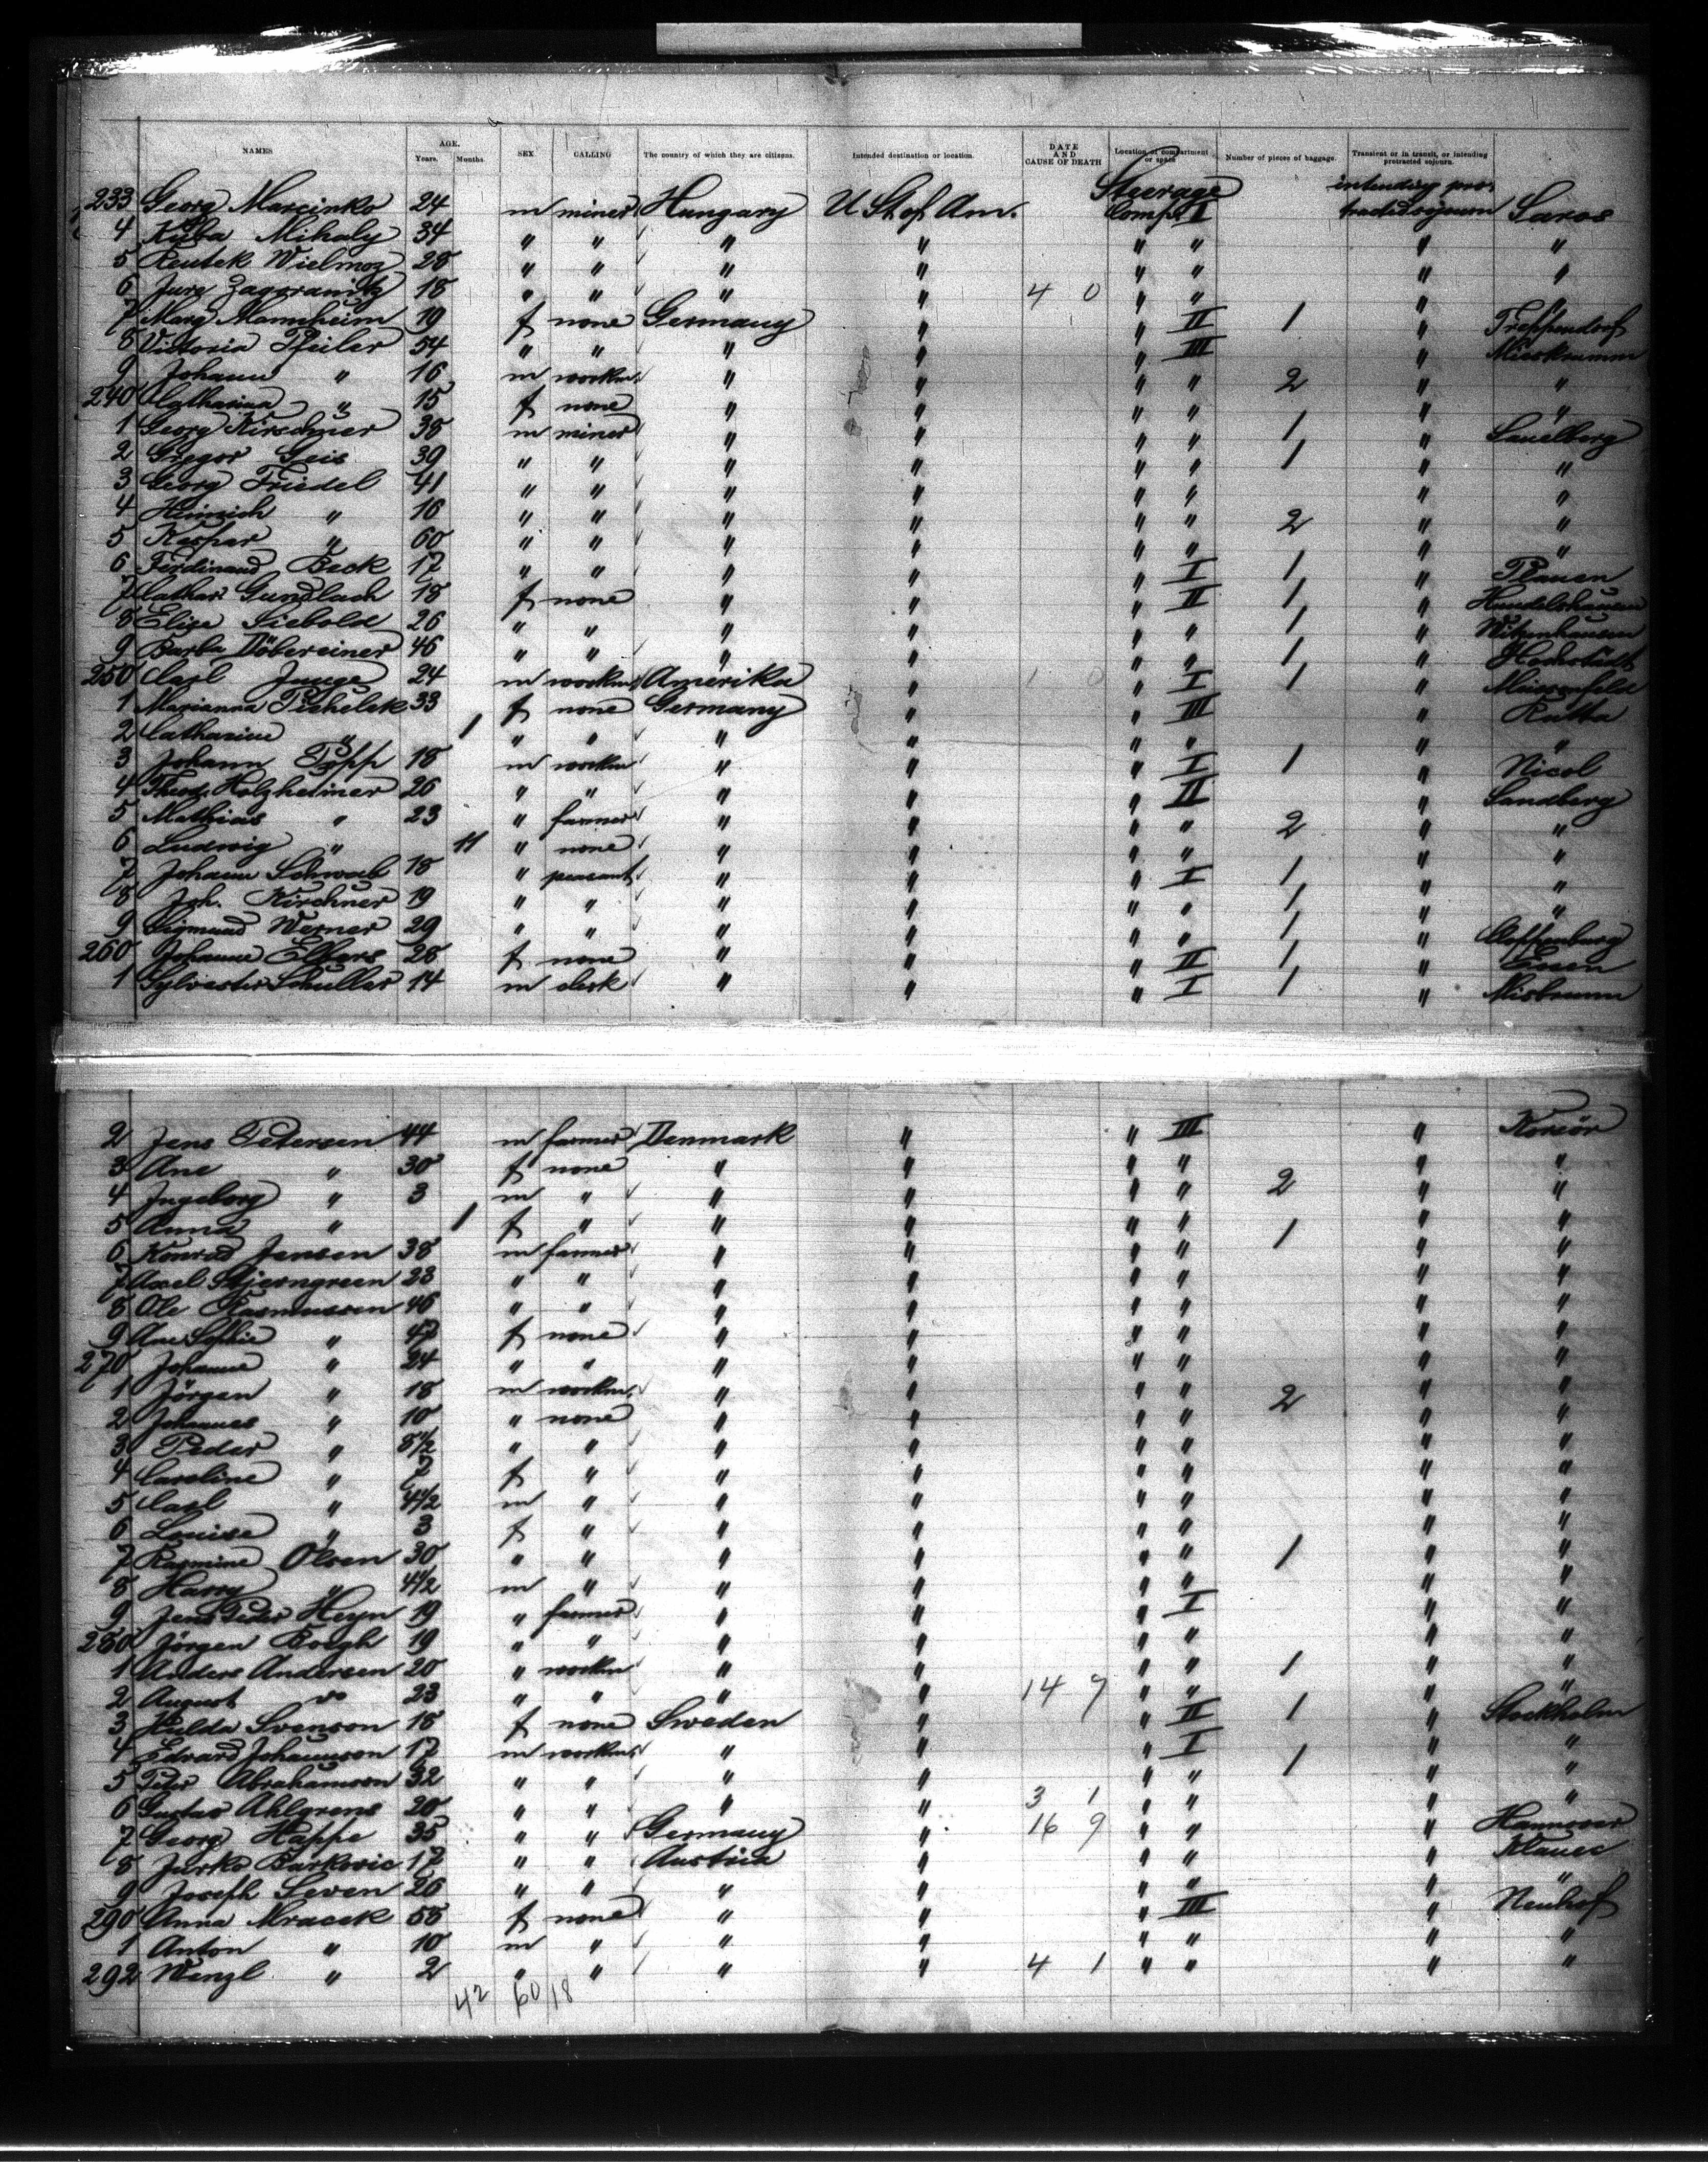 NAMES AGE. Years. Months. SEX CALLING The country of which they are citizens. Intended destination or location. DATE AND CAUSE OF DEATH Location of compartment or space Number of pieces of baggage. Transient or in transit, or intending protracted sojourn.
233 Georg Marcinko 24 m miner Hungary U St of Am. Steerage Comp. II intending protracted sojourn Saros
4 Kuba Mihaly 34 " " " " " " " "
5 Reutek Wielmoz 28 " " " " " " " "
6 Jure Zagoranitz 18 " " " " 4 0 " " " "
7 Marg Mannheim 19 f none Germany " " II 1 " Treppendorf
8 Victoria Pfeiler 54 " " " " " III "
9 Johann " 16 m workm. " " " " 2 " "
240 Catharina " 15 f none " " " " " "
1 Georg Kirschner 38 m miner " " " " 1 "
2 Gregor Geis 39 " " " " " " 1 " "
3 Georg Friedel 41 " " " " " " " "
4 Heinrich " 16 " " " " " " 2 " "
5 Kaspar " 60 " " " " " " " "
6 Ferdinand Beck 17 " " " " " I 1 " Plauen
7 Cathar Gundlach 18 f none " " " II 1 " Hundelshausen
8 Elise Siebold 26 " " " " " " 1 " Witzenhausen
9 Barba Döbereiner 46 " " " " " " 1 " Hochstädt
250 Carl Junge 24 m workm. Amerika " 1 0 " I 1 "
1 Marianna Pichelek 33 f none Germany " " III " Rutta
2 Catharine " 1 " " " " " " " "
3 Johann Popp 18 m workm " " " I 1 " Nicol
4 Theod. Holzheimer 26 " " " " " II " Sandberg
5 Mathias " 23 " farmer " " " " 2 " "
6 Ludwig " 11 " none " " " " " "
7 Johann Schwab 18 " peasant " " " I 1 " "
8 Joh. Kirchner 19 " " " " " " 1 " "
9 Sigmund Werner 29 " " " " " " 1 " Cloppenburg
260 Johanne Elbers 28 f none " " " II 1 " Essen
1 Sylvester Schuller 14 m clerk " " " I 1 " Misbrunn
2 Jens Petersen 44 m farmer Denmark " " III " Korsör
3 Ane " 30 f none " " " " " "
4 Ingeborg " 3 m " " " " " 2 " "
5 Anna " 1 f " " " " " 1 " "
6 Konrad Jensen 38 m farmer " " " " " "
7 Axel Stjerngreen 23 " " " " " " " "
8 Ole Rasmussen 46 " " " " " " " "
9 Ane Sophie " 47 f none " " " " " "
270 Johanne " 24 " " " " " " " "
1 Jörgen " 18 m workm. " " " " 2 " "
2 Johannes " 10 " none " " " " " "
3 Peder " 8 1/2 " " " " " " " "
4 Caroline " 7 f " " " " " " "
5 Carl " 4 1/2 m " " " " " " "
6 Louise " 3 f " " " " " " "
7 Rasmine Olsen 30 " " " " " " 1 " "
8 Harry " 4 1/2 m " " " " " " "
9 Jens Peder Heyn 19 " farmer " " " I " "
280 Jörgen Bough 19 " " " " " " " "
1 Anders Andersen 20 " workm " " " " 1 " "
2 August do 23 " " " " 14 9 " " " "
3 Hulda Svenson 18 f none Sweden " " II 1 " Stockholm
4 Edvard Johannson 17 m workm. " " " I " "
5 Peter Abrahamson 32 " " " " " " 1 " "
6 Gustav Ahlgrens 20 " " " " 3 1 " " " "
7 Georg Happe 35 " " Germany " 16 9 " " " Hannover
8 Jurko Barkovic 17 " " Austria " " " " Klauec
9 Joseph Seven 26 " " " " " " " "
290 Anna Mracek 58 f none " " " III " Neuhof
1 Anton " 10 m " " " " " " "
292 Wenzl " 2 " " " " 4 1 " " " "
42 60 18